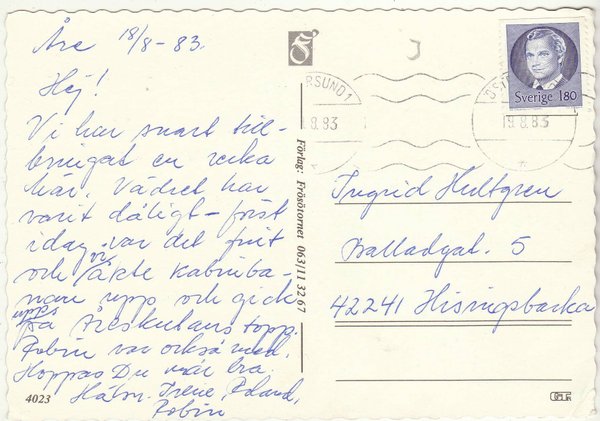 Åre 18/8-83.
Hej!
Vi har snart till-
bringat en vecka
här. Vädret har
varit dåligt – först
idag var det fint
och vi åkte kabinba-
nan upp och gick
uppå Åreskutans topp.
Robin var också med.
Hoppas Du mår bra.
Hälsn. Irene, Roland,
Robin
4023
Förlag: Frösötornet 063/11 32 67
RSUND 1
19.8.83
ÖST
19.8.83
Sverige 180
Ingrid Hultgren
Balladgat. 5
42241 Hisingsbacka